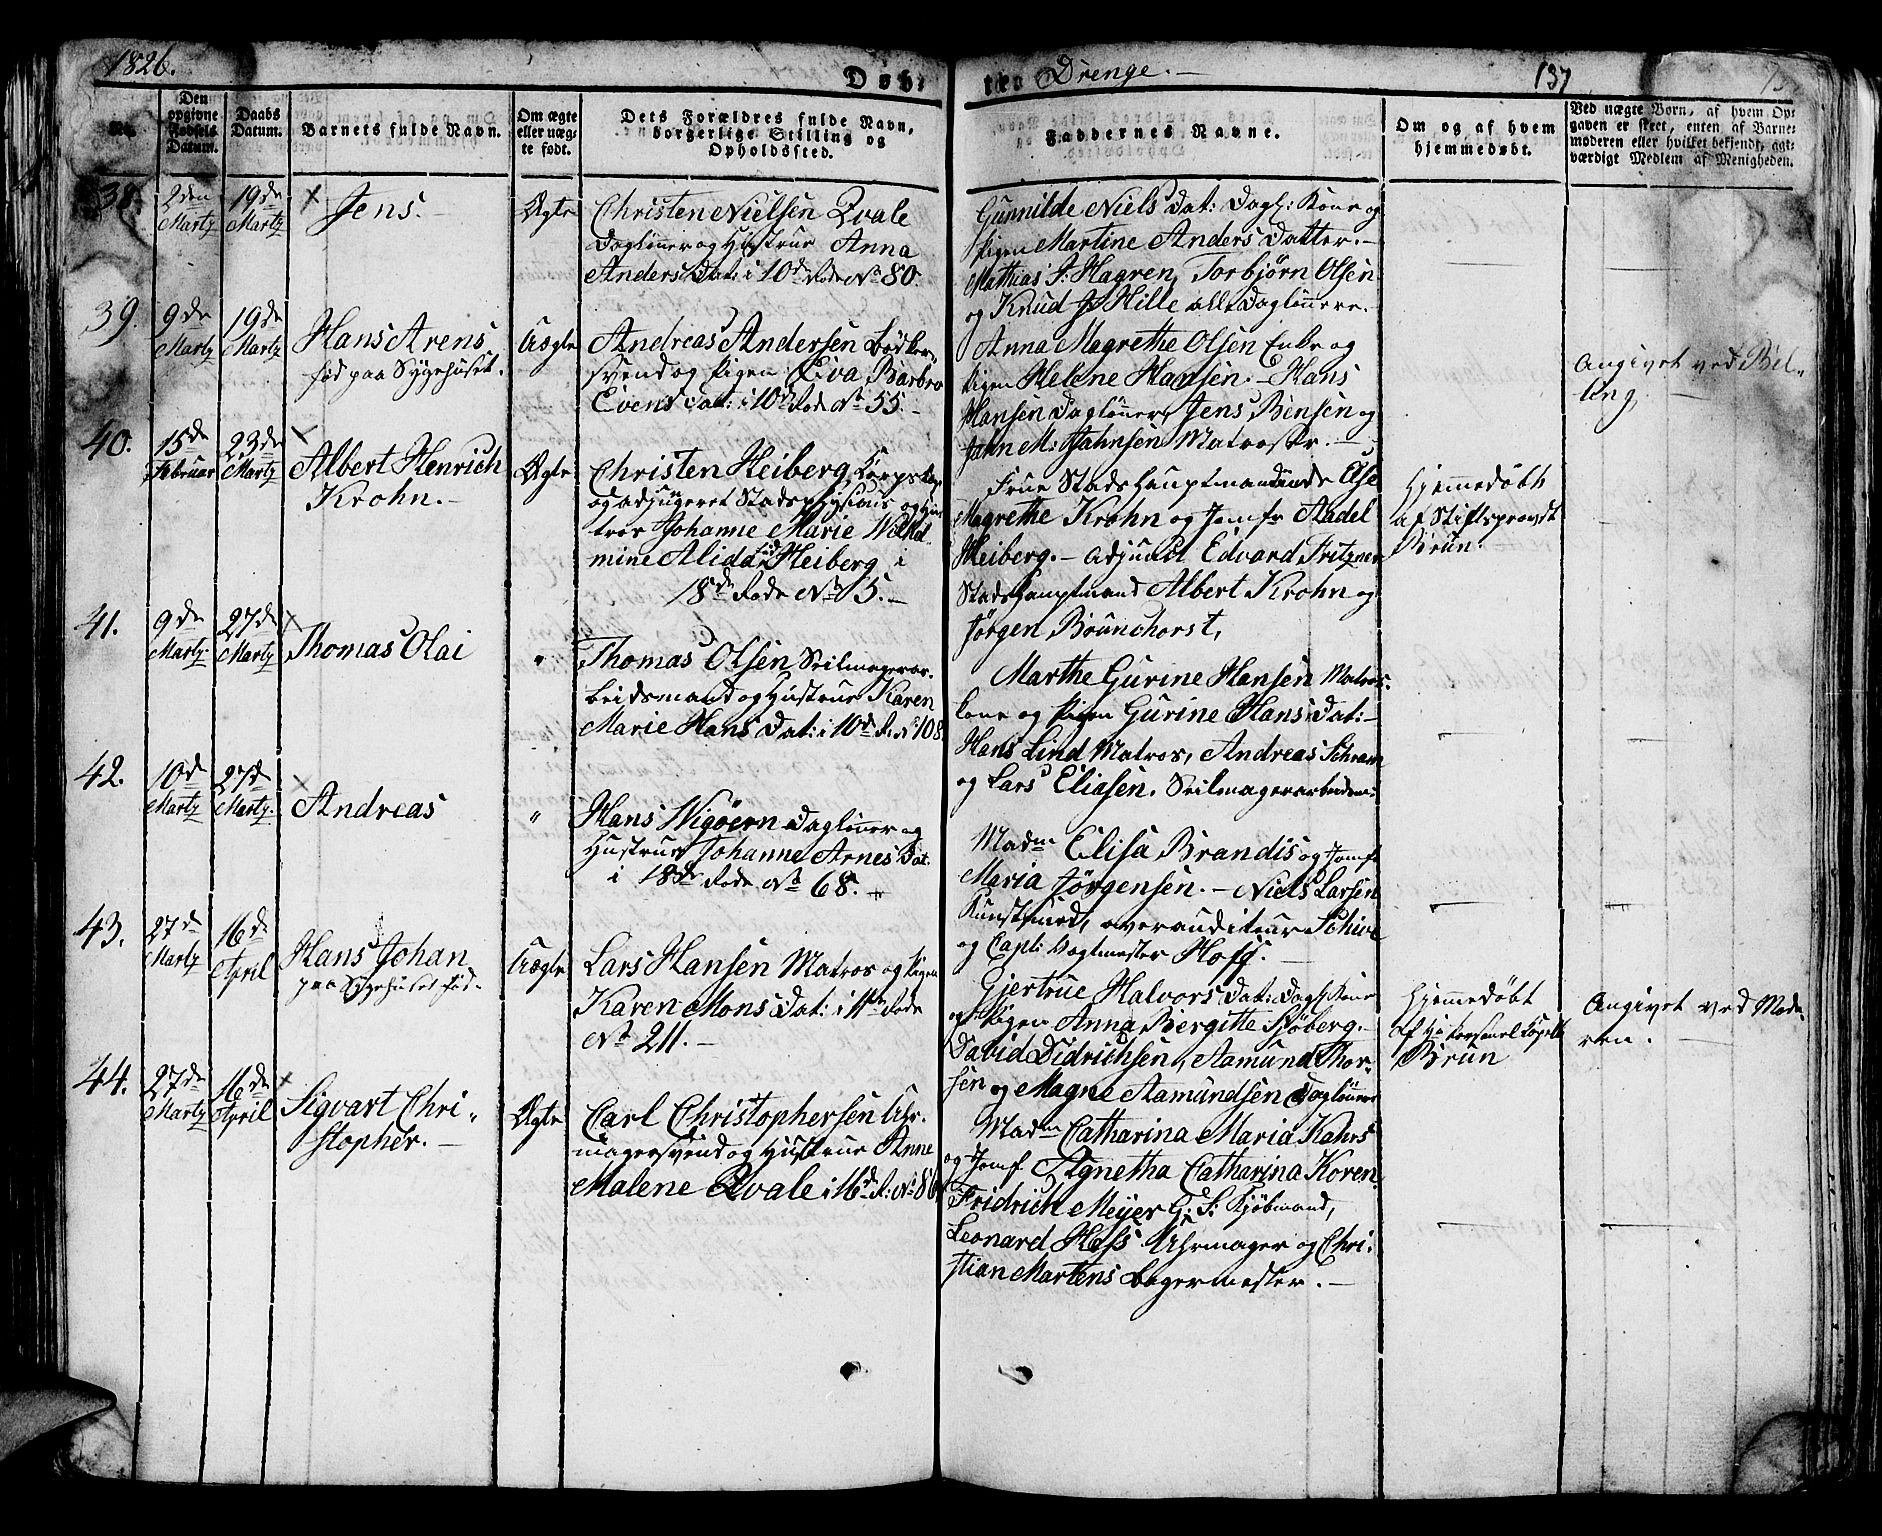 1826.
Døb-
te Drenge.
137
No.
Den
opgivne
Fødsels
Datum.
Daabs
Datum.
Barnets fulde Navn.
Om ægte
eller uæg-
te født.
Dets Forældres fulde Navn,
borgerlige Stilling og
Opholdssted.
Faddernes Navne.
Om og af hvem
hjemmedøbt.
Ved uægte Børn, af hvem Op-
gaven er skeet, enten af Barne-
moderen eller hvilket bekjendt, agt-
værdigt Medlem af Menigheden.
38.
2den
Martz
19de
Martz
Jens.
Ægte
Christen Nielsen Qvale
Dagløner og Hustrue Anna
Anders Dat: i 10de Rode No 80.
Gunnilde Niels Dat: Dagl: Kone og
Pigen Martine Anders Datter.
Mathias S: Hagren, Torbjørn Olsen
og Knud J: Hille alle Daglønere.
39.
9de
Martz
19de
Martz
Hans Arens
født paa Sygehuset.
Uægte
Andreas Andersen Bødker-
svend og Pigen Eiva Barbro
Evens Dat: i 10de Rode No 55.
Anna Magrethe Olsen Enke og
Pigen Helene Hansen. Hans
Hansen Dagløner, Jens Bensen og
Jahn M: Jahnsen Matroser.
Angivet ved Bil-
ling,
40.
15de
Februar
23de
Martz
Albert Henrich
Krohn.
Ægte
Christen Heiberg, Korpslæge
og adjungeret Stadsphysicus og Hus-
troe Johanne Marie Wilhel-
mine Alida fød Heiberg i
18de Rode No 5.
Frue Stadshauptmandinde Else
Magrethe Krohn og Jomfr Aadel
Heiberg. Adjunct Edvard Fritzner
Stadshauptmand Albert Krohn og
Jørgen Brunchorst,
Hjemmedøbt
af Stiftsprovst
Brun.
41.
9de
Martz
27de
Martz
Thomas Olai
"
Thomas Olsen Seilmagerar-
beidsmand og Hustrue Karen
Marie Hans Dat: i 10de R: No 108
Marthe Gurine Hansen Matros-
kone og Pigen Gurine Hans Dat:
Hans Lind Matros, Andreas Schram
og Lars Eliasen. Seilmagerarbeidsm:
42.
10de
Martz
27de
Martz
Andreas
"
Hans Wigøern Dagløner og
Hustrue Johanne Arnes Dat.
i 18de Rode No 68.
Madm Elisa Brandis og Jomfr
Maria Jørgensen. Niels Larsen
overauditeur Schive
og Capt: Vagtmester Hoff.
43.
27de
Martz
16de
April
Hans Johan
paa Sygehuset fød.
Uægte
Lars Hansen Matros og Pigen
Karen Mons Dat: i 11te Rode
No 211.
Gjertrue Halvors Dat: Dagl: Kone
og Pigen Anna Bergitte Sjøberg.
David Didrichsen, Aamund Thor-
sen og Magne Aamundsen Dagløner
Hjemmedøbt
af Hr Personel Kapell
Brun
Angivet ved Mode-
ren.
44.
27de
Martz
16de
April
Sigvart Chri-
stopher.
Ægte
Carl Christophersen Uhr-
magersvend og Hustrue Anne
Malene Qvale i 16de R: No 86
Madm Catharina Maria Kahrs
og Jomf Agnetha Catharina Koren.
Fridrich Meyer G: S: Kjøbmand,
Leonard Hess Uhrmager og Chri-
stian Martens Bagermester.